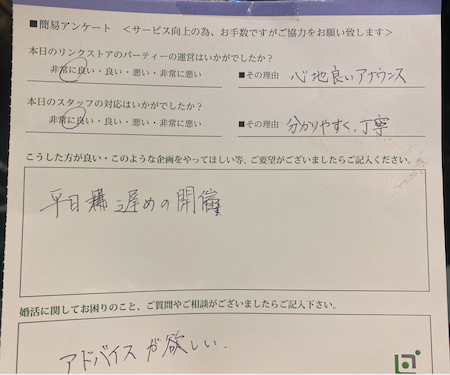 ■簡易アンケート <サービス向上の為、お手数ですがご協力をお願い致します>
本日のリンクストアのパーティーの運営はいかがでしたか?
非常に良い・良い・悪い・非常に悪い ■その理由 心地良いアナウンス
本日のスタッフの対応はいかがでしたか?
非常に良い・良い・悪い・非常に悪い ■その理由 分かりやすく、丁寧
こうした方が良い・このような企画をやってほしい等、ご要望がございましたらご記入ください。
平日 遅めの開催
婚活に関してお困りのこと、ご質問やご相談がございましたらご記入下さい。
アドバイスが欲しい.